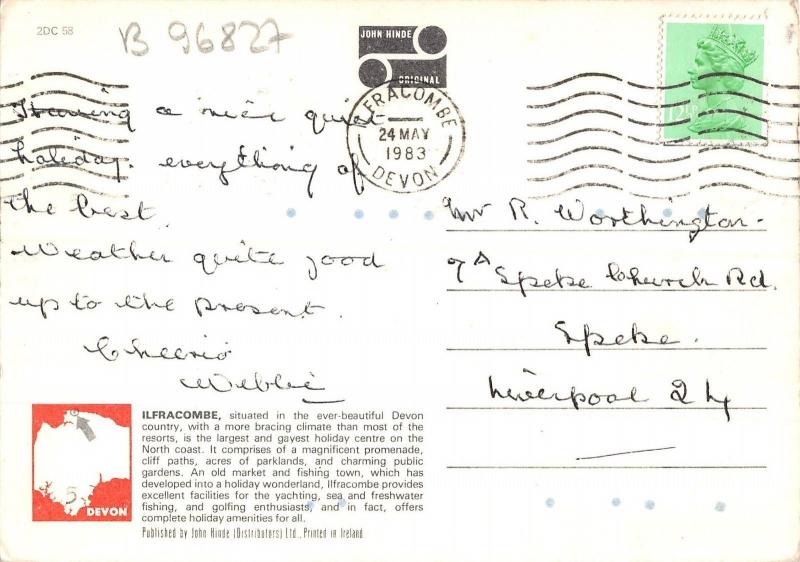 2DC 58
B 96827
JOHN HINDE
ORIGINAL
ILFRACOMBE
24 MAY
1983
DEVON
12½P
Having a nice quiet
holiday. everything of
the best.
Weather quite good
up to the present.
Cheerio
Mr R. Worthington.
7A Speke Church Rd.
Speke.
Liverpool 24
ILFRACOMBE, situated in the ever-beautiful Devon
country, with a more bracing climate than most of the
resorts, is the largest and gayest holiday centre on the
North coast. It comprises of a magnificent promenade,
cliff paths, acres of parklands, and charming public
gardens. An old market and fishing town, which has
developed into a holiday wonderland, Ilfracombe provides
excellent facilities for the yachting, sea and freshwater
fishing, and golfing enthusiasts, and in fact, offers
complete holiday amenities for all.
Published by John Hinde (Distributors) Ltd., Printed in Ireland
5
DEVON